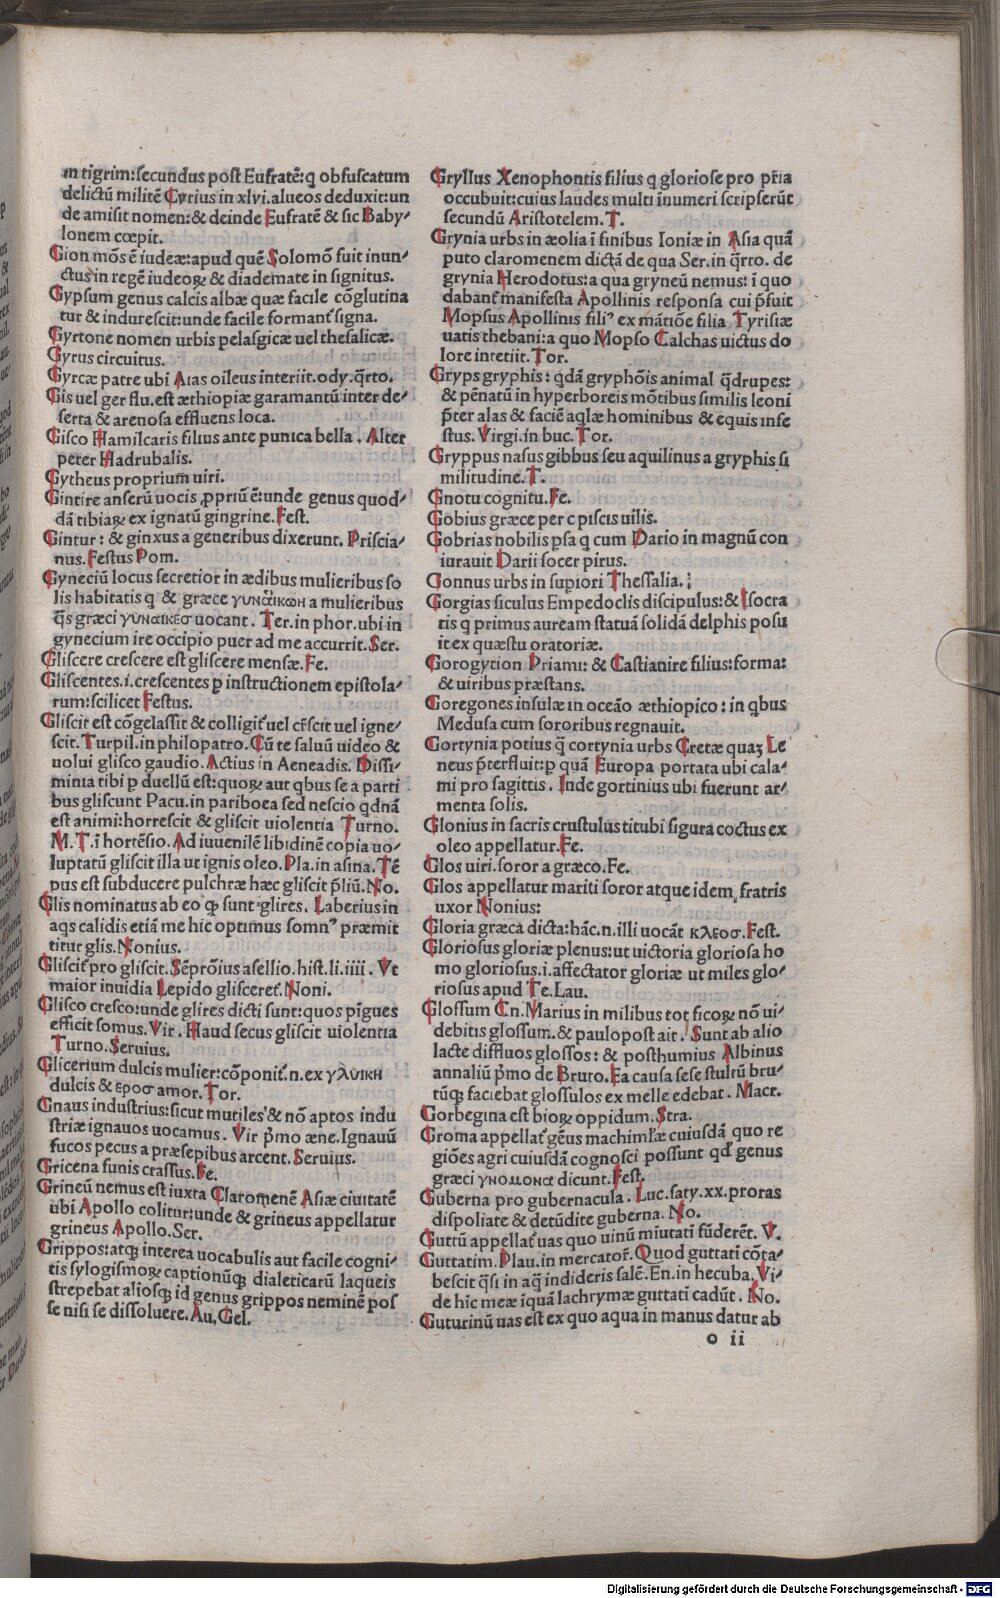 in tigrim:secundus post Eufratē:q obfuscatum
delictū militē Cyrius in xlvi.alueos deduxit:un
de amisit nomen:& deinde Eufratē & sic Baby-
lonem cœpit.
Gion mōs ē iudeæ:apud quē Solomō fuit inun-
ctus in regē iudeoꝝ & diademate in signitus.
Gypsum genus calcis albæ quæ facile cōglutina
tur & indurescit:unde facile formant̄ signa.
Gyrtone nomen urbis pelasgicæ uel thesalicæ.
Gyrus circuitus.
Gyrcæ patre ubi Aias oileus interiit.ody.q̄rto.
Gis uel ger flu.est æthiopiæ garamantū inter de-
serta & arenosa effluens loca.
Gisco Hamilcaris filius ante punica bella. Alter
peter Hadrubalis.
Gytheus proprium uiri.
Gintire anserū uocis ꝓpriū ē:unde genus quod-
dā tibiaꝝ ex ignatū gingrine.Fest.
Gintur: & ginxus a generibus dixerunt. Priscia-
nus.Festus Pom.
Gyneciū locus secretior in ædibus mulieribus so
lis habitatis q & græce γυναίκωη a mulieribus
q̄s græci γυναικεσ uocant. Ter.in phor.ubi in
gynecium ire occipio puer ad me accurrit.Ser.
Gliscere crescere est gliscere mensæ.Fe.
Gliscentes.i.crescentes ꝑ instructionem epistola-
rum:scilicet Festus.
Gliscit est cōgelassit & colligit̄ uel cr̄scit uel igne-
scit.Turpil.in philopatro.Cū te saluū uideo &
uolui glisco gaudio.Actius in Aeneadis. Dissi-
minia tibi ꝑ duellū est:quoꝝ aut qbus se a parti
bus gliscunt Pacu.in pariboea sed nescio qdnā
est animi:horrescit & gliscit uiolentia Turno.
M.T.ī hortēsio.Ad iuuenilē libidinē copia uo-
luptatū gliscit illa ut ignis oleo.Pla.in asina.Tē
pus est subducere pulchræ hæc gliscit p̄liū.No.
Glis nominatus ab eo ꝙ sunt glires. Laberius in
aqs calidis etiā me hic optimus somnꝰ præmit
titur glis.Nonius.
Gliscit̄ pro gliscit.Sēprōius asellio.hist.li.iiii. Vt
maior inuidia Lepido glisceret̄.Noni.
Glisco cresco:unde glires dicti sunt:quos pīgues
efficit somus.Vir. Haud secus gliscit uiolentia
Turno.Seruius.
Glicerium dulcis mulier:cōponit̄.n.ex γλυικη
dulcis & εροσ amor.Tor.
Gnaus industrius:sicut mutiles & nō aptos indu
striæ ignauos uocamus. Vir p̄mo æne.Ignauū
fucos pecus a præsepibus arcent.Seruius.
Gricena funis crassus.Fe.
Grineū nemus est iuxta Claromenē Asiæ ciuitatē
ubi Apollo colitur:unde & grineus appellatur
grineus Apollo.Ser.
Grippos:atq; interea uocabulis aut facile cogni-
tis sylogismoꝝ captionūq; dialeticarū laqueis
strepebat aliosq; id genus grippos neminē pos
se nisi se dissoluere.Au,Gel.
Gryllus Xenophontis filius q gloriose pro pr̄ia
occubuit:cuius laudes multi inumeri scripserūt
secundū Aristotelem.T.
Grynia urbs in æolia ī finibus Ioniæ in Asia quā
puto claromenem dictā de qua Ser.in q̄rto. de
grynia Herodotus:a qua gryneū nemus: ī quo
dabant̄ manifesta Apollinis responsa cui p̄fuit
Mopsus Apollinis filiꝰ ex mātiōe filia Tyrisiæ
uatis thebani:a quo Mopso Calchas uictus do
lore intetiit.Tor.
Gryps gryphis: qdā gryphōis animal q̄drupes:
& pēnatū in hyperboreis mōtibus similis leoni
p̄ter alas & faciē aqlæ hominibus & equis infe
stus.Virgi.in buc.Tor.
Gryppus nasus gibbus seu aquilinus a gryphis si
militudine.T.
Gnotu cognitu.Fe.
Gobius græce per c piscis uilis.
Gobrias nobilis ꝑsa q cum Dario in magnū con
iurauit Darii socer pirus.
Gonnus urbs in supiori Thessalia.
Gorgias siculus Empedoclis discipulus:& Isocra
tis q primus auream statuā solidā delphis posu
it ex quæstu oratoriæ.
Gorogytion Priami: & Castianire filius:forma:
& uiribus præstans.
Goregones insulæ in oceāo æthiopico: in qbus
Medusa cum sororibus regnauit.
Gortynia potius q̄ cortynia urbs Cretæ quaȝ Le
neus p̄terfluit:ꝑ quā Europa portata ubi cala-
mi pro sagittis. Inde gortinius ubi fuerunt ar-
menta solis.
Glonius in sacris crustulus titubi figura coctus ex
oleo appellatur.Fe.
Glos uiri.soror a græco.Fe.
Glos appellatur mariti soror atque idem fratris
uxor Nonius:
Gloria græca dicta:hāc.n.illi uocāt κλεοσ.Fest.
Gloriosus gloriæ plenus:ut uictoria gloriosa ho
mo gloriosus.i.affectator gloriæ ut miles glo-
riosus apud Te.Lau.
Glossum Cn.Marius in milibus tot ficoꝝ nō ui-
debitis glossum.& paulopost ait. Sunt ab alio
lacte diffluos glossos: & posthumius Albinus
annaliū p̄mo de Bruto.Ea causa sese stultū bru-
tūq; faciebat glossulos ex melle edebat. Macr.
Gorbegina est bioꝝ oppidum.Stra.
Groma appellat̄ gēus machimlæ cuiusdā quo re
giōes agri cuiusdā cognosci possunt qd genus
græci γνομονα dicunt.Fest.
Guberna pro gubernacula. Luc.saty.xx.proras
dispoliate & detūdite guberna. No.
Guttū appellat̄ uas quo uinū miutati fūderēt. V.
Guttatim.Plau.in mercator̄. Quod guttati cōta-
bescit q̄si in aq̄ indideris salē.En.in hecuba.Vi-
de hic meæ īquā lachrymæ guttati cadūt. No.
Guturinū uas est ex quo aqua in manus datur ab
o ii
Digitalisierung gefördert durch die Deutsche Forschungsgemeinschaft - DFG